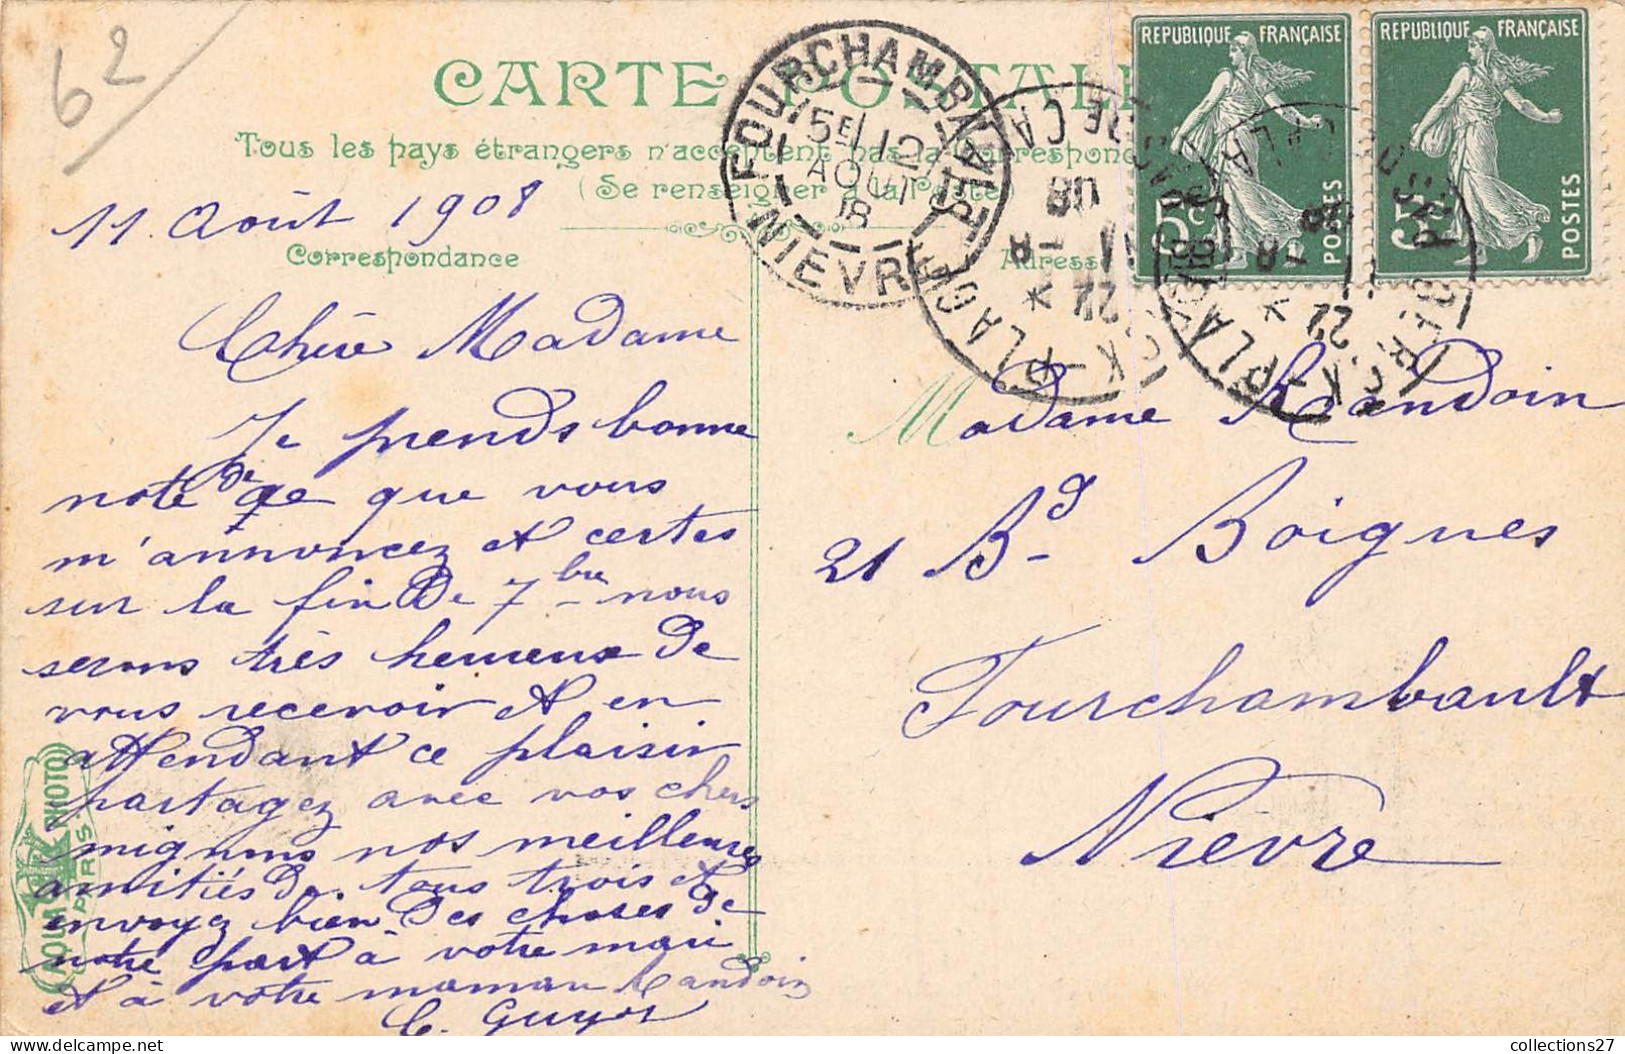 62
CARTE POSTALE
Tous les pays étrangers n'acceptent pas la Correspond
(Se renseigner à la Poste)
Correspondance
Adresse
REPUBLIQUE FRANÇAISE
5c
POSTES
REPUBLIQUE FRANÇAISE
5c
POSTES
FOURCHAMBAULT
5E/12
AOUT
08
NIEVRE
11 Août 1908
Chère Madame
Je prends bonne
note de ce que vous
m'annoncez et certes
sur la fin de 7bre nous
serons très heureux de
vous recevoir et en
attendant ce plaisir
partagez avec vos chers
mignons nos meilleures
amitiés de tous trois et
envoyez bien des choses de
notre part à votre mari
et à votre maman Landoin
C. Guyot
Madame Randoin
21 Bd Boignes
Fourchambault
Nièvre
AQUA PHOTO
PARIS
collections27